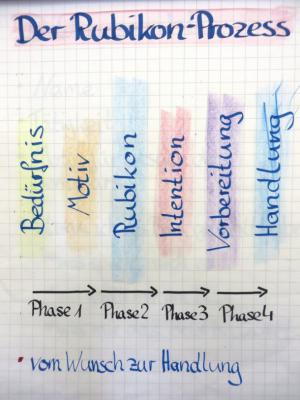 Der Rubikon-Prozess
Bedürfnis
Motiv
Rubikon
Intention
Vorbereitung
Handlung
Phase 1 Phase 2 Phase 3 Phase 4
• vom Wunsch zur Handlung